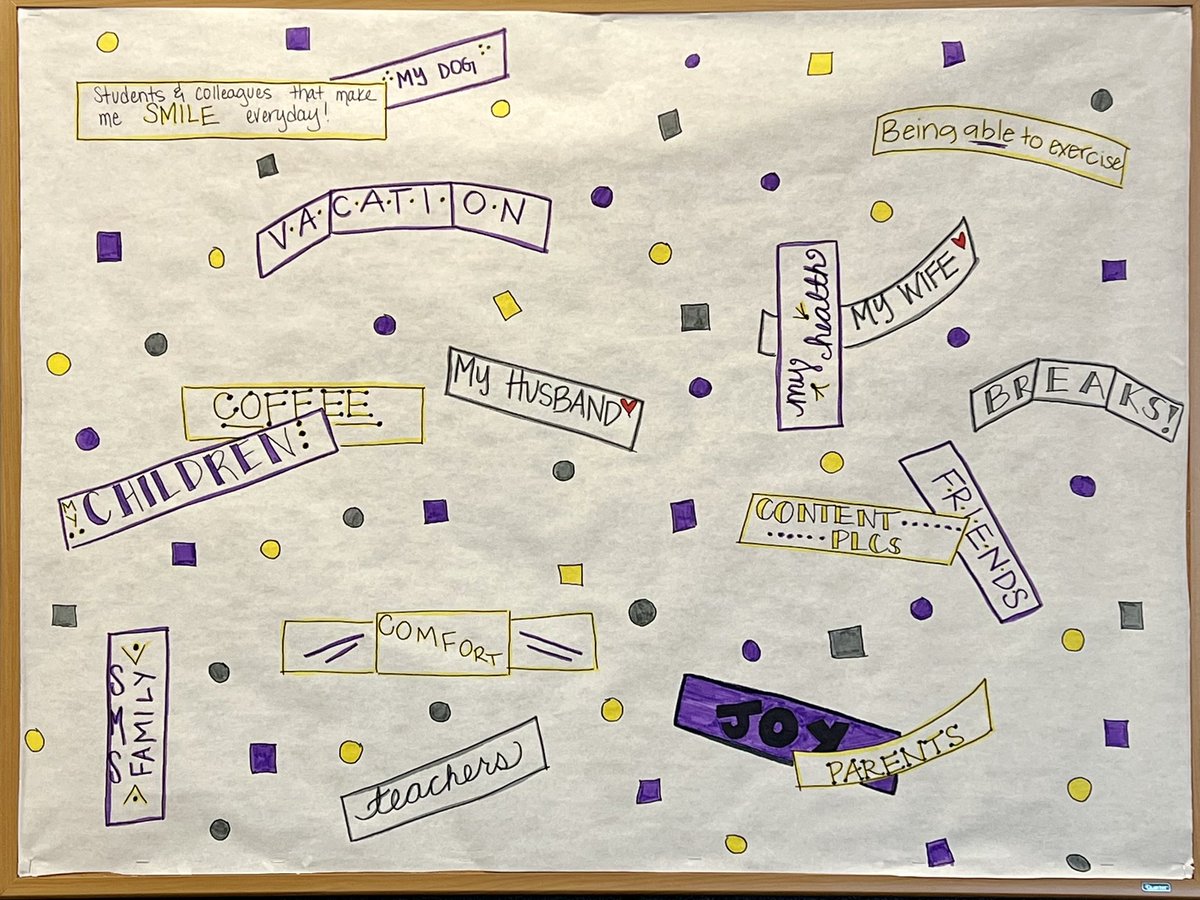 MY DOG
Students & colleagues that make
me SMILE everyday!
Being able to exercise
V·A·C·A·T·I·O·N
my health
MY WIFE
MY HUSBAND
BREAKS!
COFFEE
MY CHILDREN
F·R·I·E·N·D·S
CONTENT
PLCs
COMFORT
SMS
FAMILY
JOY
PARENTS
teachers
Quartet